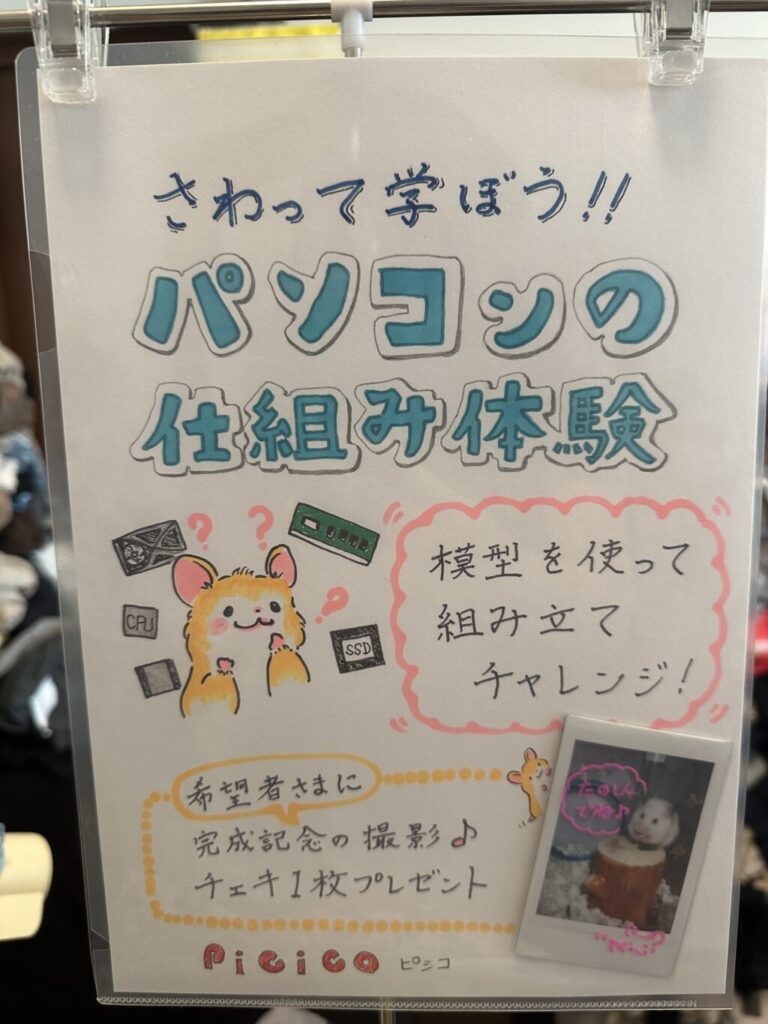 さわって学ぼう!!
パソコンの
仕組み体験
? ? ?
CPU
SSD
模型を使って
組み立て
チャレンジ!
希望者さまに
完成記念の撮影♪
チェキ1枚プレゼント
たのしん
でね♪
PiCiCO ピシコ